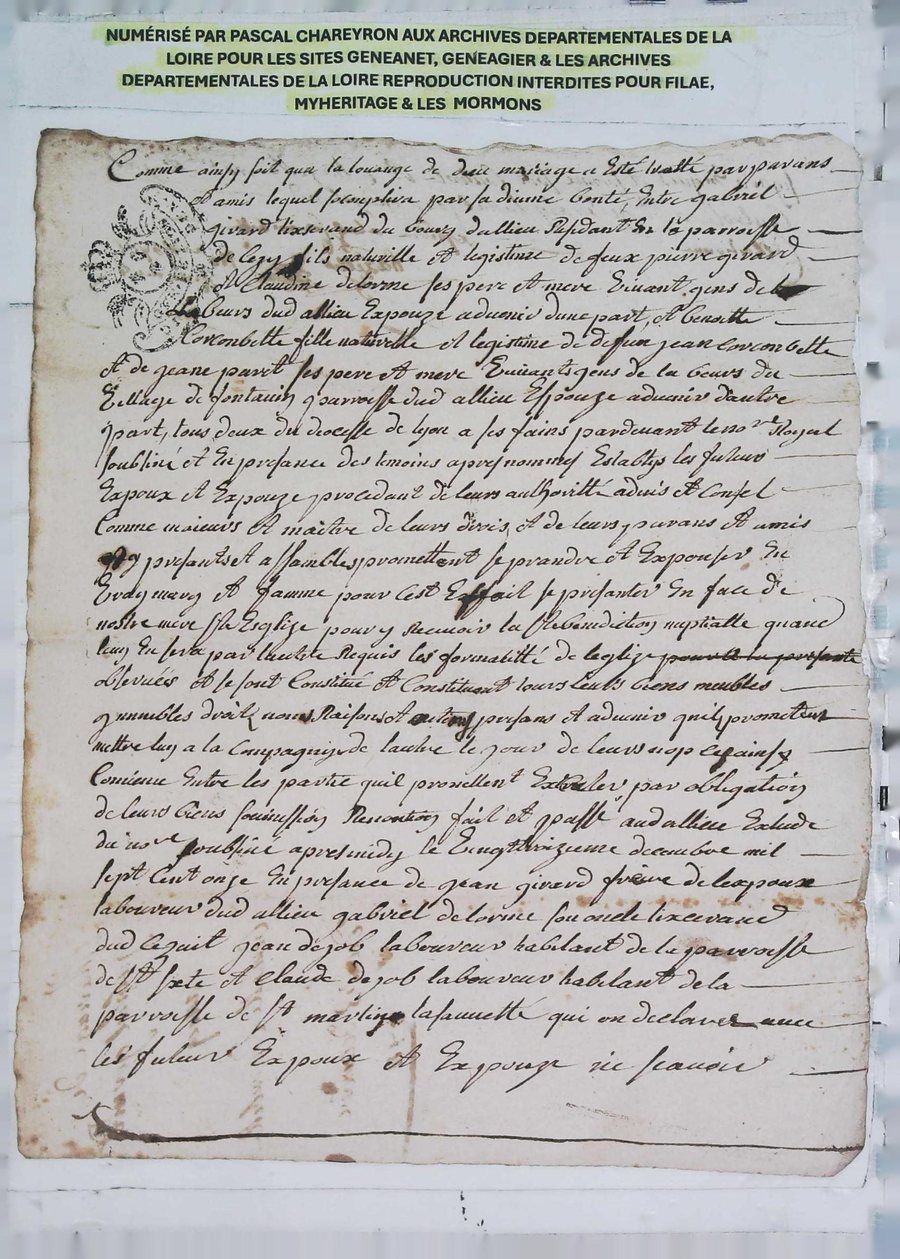 NUMÉRISÉ PAR PASCAL CHAREYRON AUX ARCHIVES DEPARTEMENTALES DE LA
LOIRE POUR LES SITES GENEANET, GENEAGIER & LES ARCHIVES
DEPARTEMENTALES DE LA LOIRE REPRODUCTION INTERDITES POUR FILAE,
MYHERITAGE & LES MORMONS
Comme ainsy soit qua la louange de dieu mariage a Esté traitté par parans
et amis lequel par sa diuine bonté, Entre gabriel
girard tixserand du bourg dallieu Residant En la parroisse
de fils naturelle et legistime de feux pierre girard
et Claudine delorme ses pere et mere Viuant gens de
Labeurs dud allieu Expouze aduenir dune part, et benoitte
Corconbette fille naturelle et legistime de defun jean Corconbette
et de jeane paret ses pere et mere Viuants gens de la beurs du
Village de parroisse dud allieu Espouze aduenir dautre
part, tous deux du diocesse de lyon a ses fains pardeuant le nore Royal
soubsiné et En presance des temoins apres nommes Establys les futeurs
Expoux et Expouze procedant de leurs authoritté aduis et Consel
Comme maieurs et maitre de leurs et de leurs parans et amis
presants et assambles promettent se prandre et Expouser En
Vray mary et famme pour Cest Effait se presanter En face de
nostre mere Ste Esglize pour y Receuoir la Ste benediction nuptialle quand
lun En sera par lautre Requis les formalitté de leglize pour la presante
obseruées et se sont Constitué et Constituent tours leurs biens meubles
ymmubles droits noms Raisons et presans et aduenir quils promettent
mettre lun a la Compagnye de lautre le jour de leurs nopces ainsy
Conuenu Entre les partie quil promettent Exsecuter par obligation
de leurs biens soumission Renontion fait et passé aud allieu Estude
du nore soubsiné apres midy le Vingt troizieme decembre mil
sept Cent onze En presance de jean girard frere de lexpoux
laboureur dud allieu gabriel delorme son oncle tixerand
dud jean dejob laboureur habitant de la parroisse
de St sixte et Claude dejob laboureur habitant de la
parroisse de St martin la sauuetté qui on declarer auec
les futeur Expoux et Expouze ne scauoir